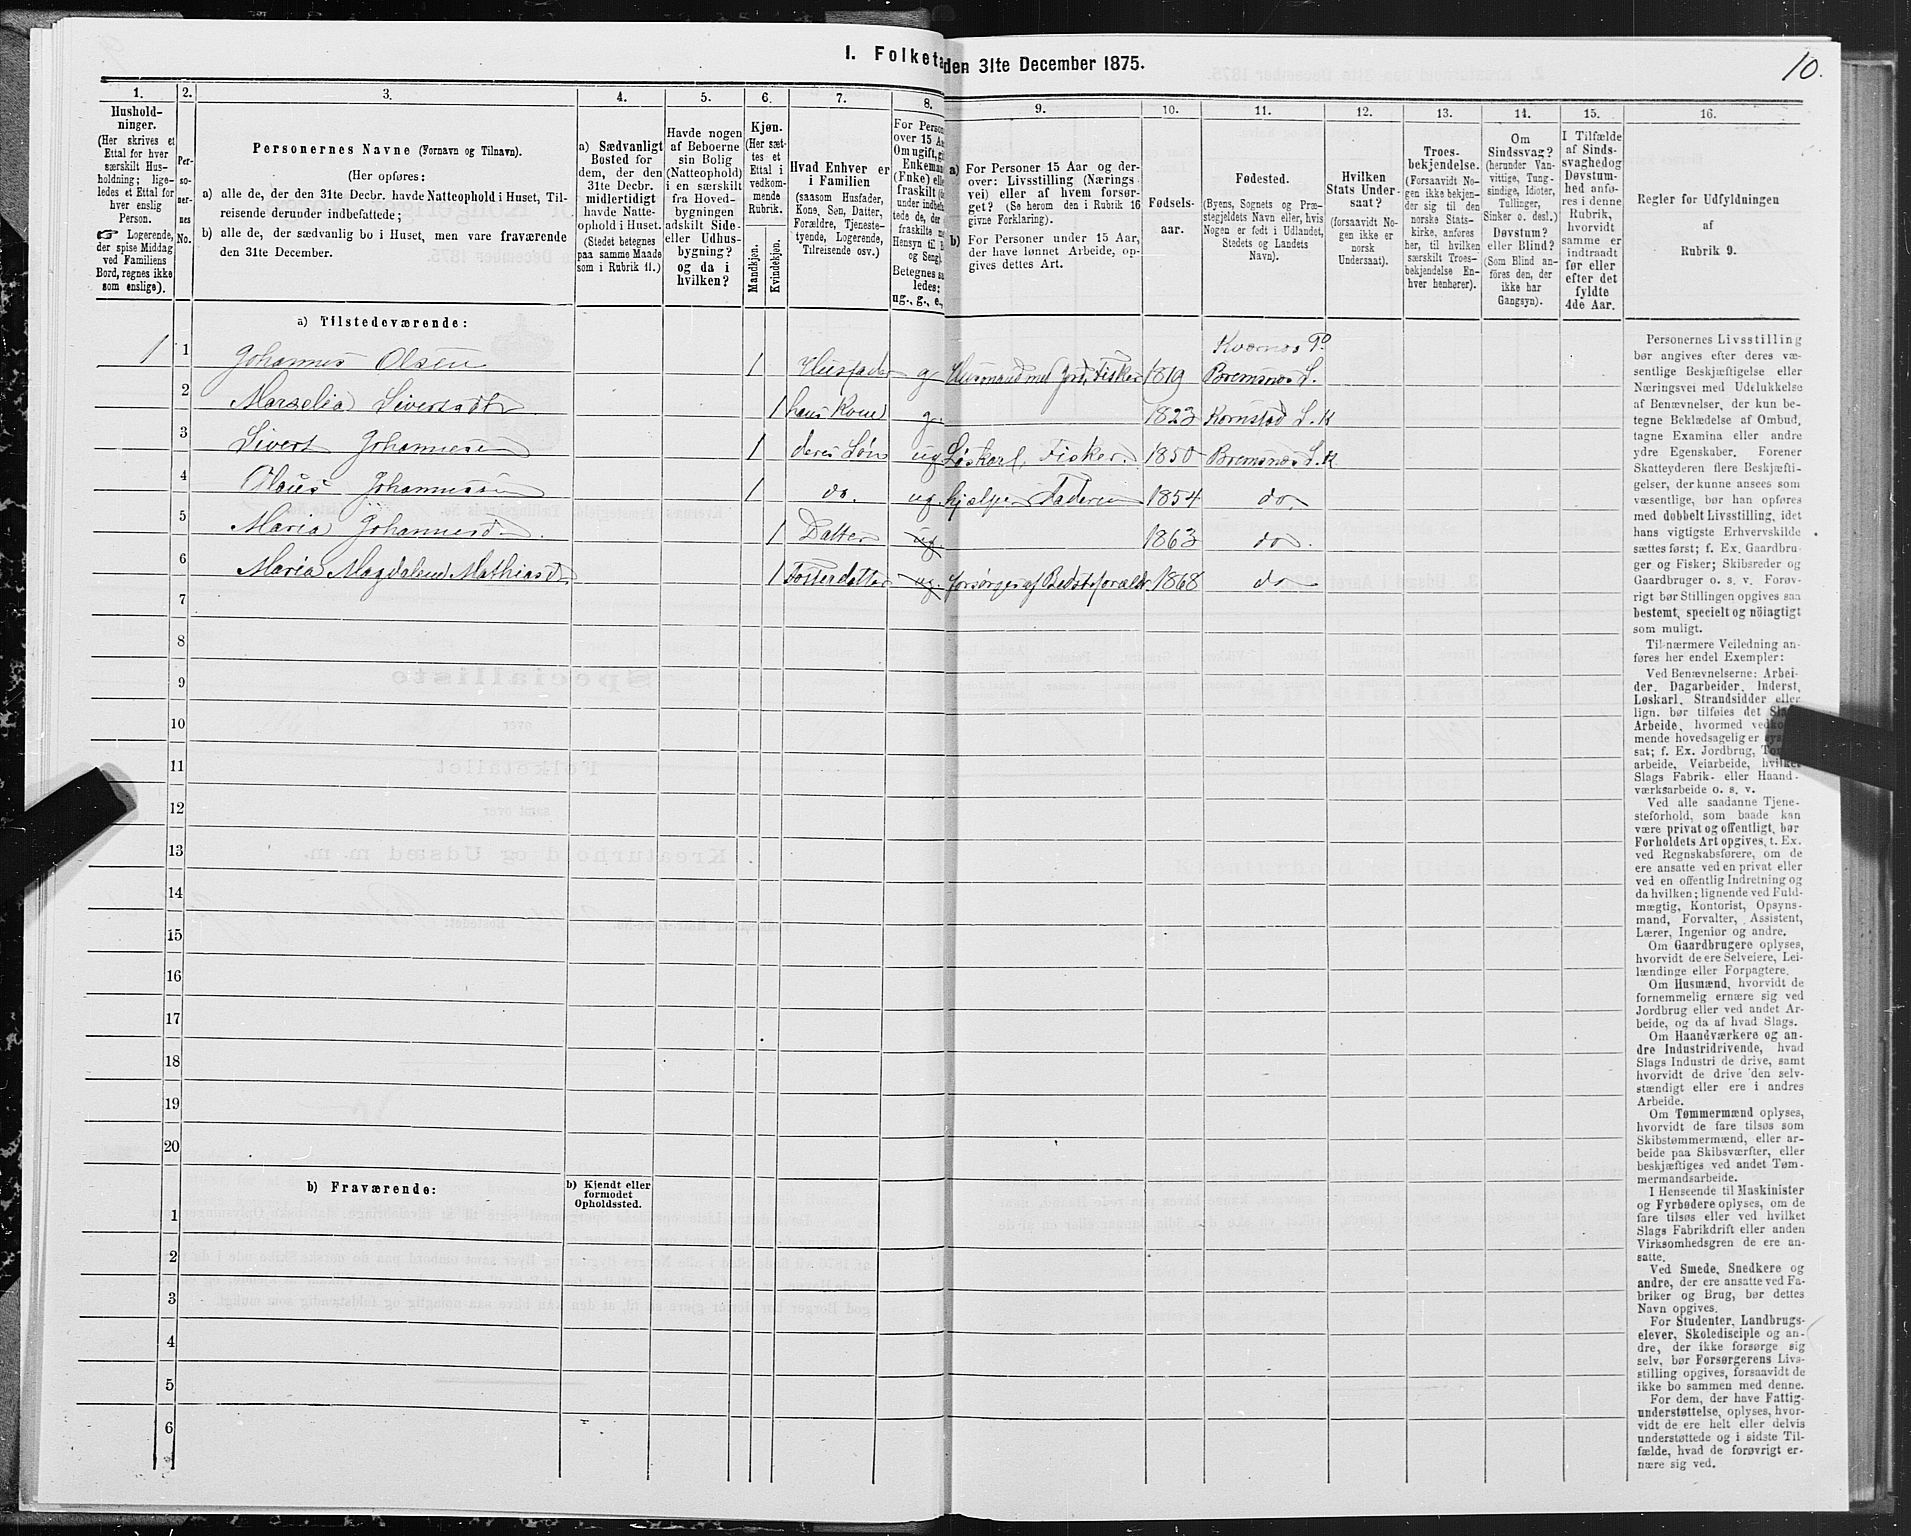 I. Folketa den 31te December 1875.
10.
1. 2. 3. 4. 5. 6. 7. 8. 9. 10. 11. 12. 13. 14. 15. 16.
Hushold-
ninger.
(Her skrives et
Ettal for hver
særskilt Hus-
holdning; lige-
ledes et Ettal for
hver enslig
Person.
☞ Logerende,
der spise Middag
ved Familiens
Bord, regnes ikke
som enslige).
Per-
so-
ner-
nes
No.
Personernes Navne (Fornavn og Tilnavn).
(Her opføres:
a) alle de, der den 31te Decbr. havde Natteophold i Huset, Til-
reisende derunder indbefattede;
b) alle de, der sædvanlig bo i Huset, men vare fraværende
den 31te December.
a) Sædvanligt
Bosted for
dem, der den
31te Decbr.
midlertidigt
havde Natte-
ophold i Huset.
(Stedet betegnes
paa samme Maade
som i Rubrik 11.)
Havde nogen
af Beboerne
sin Bolig
(Natteophold)
i en særskilt
fra Hoved-
bygningen
adskilt Side-
eller Udhus-
bygning?
og da i
hvilken?
Kjøn.
(Her sæt-
tes et
Ettal i
vedkom-
mende
Rubrik.
Mandkjøn.
Kvindekjøn.
Hvad Enhver er
i Familien
(saasom Husfader,
Kone, Søn, Datter,
Forældre, Tjeneste-
tyende, Logerende,
Tilreisende osv.)
For Person
over 15 Aa
Om ugift, gi
Enkeman
(Enke) elle
fraskilt (d
under indbefa
tede de, der
fraskilte m
Hensyn til B
og Seng).
Betegnes sa
ledes:
ug., g., e.,
a) For Personer 15 Aar og der-
over: Livsstilling (Nærings-
vei) eller af hvem forsør-
get? (Se herom den i Rubrik 16
givne Forklaring).
b) For Personer under 15 Aar,
der have lønnet Arbeide, op-
gives dettes Art.
Fødsels-
aar.
Fødested.
(Byens, Sognets og Præ-
stegjeldets Navn eller, hvis
Nogen er født i Udlandet,
Stedets og Landets
Navn).
Hvilken
Stats Under-
saat?
(forsaavidt No-
gen ikke er
norsk
Undersaat).
Troes-
bekjendelse.
(Forsaavidt No-
gen ikke bekjen-
der sig til den
norske Stats-
kirke, anføres
her, til hvilken
særskilt Troes-
bekjendelse En-
hver henhører).
Om
Sindssvag?
(herunder Van-
vittige, Tung-
sindige, Idioter,
Tullinger,
Sinker o. desl.)
Døvstum?
eller Blind?
(Som Blind an-
føres den, der
ikke har
Gangsyn).
I Tilfælde
af Sinds-
svaghed og
Døvstum-
hed anfø-
res i denne
Rubrik,
hvorvidt
samme er
indtraadt
før eller
efter det
fyldte
4de Aar.
Regler for Udfyldningen
af
Rubrik 9.
a) Tilstedeværende:
Kværnes P.
1 1 Johannes Olsen 1 Husfader g Husmand med Jord, Fisker 1819 Bremsnes S.
2 Marselia Sivertsdtr 1 hans Kone g. 1823 Kornstad S. K
3 Sivert Johannesen 1 deres Søn ug Løskarl, Fisker. 1850 Bremsnes S. K
4 Olaus Johannessen 1 do. ug. hjælper Faderen 1854 do.
5 Maria Johannesd. 1 Datter ug 1863 do.
6 Maria Magdalena Mathiasd. 1 Fosterdatter ug forsørges af Bedsteforældr. 1868 do
7
8
9
10
11
12
13
14
15
16
17
18
19
20
b) Fraværende:
b) Kjendt eller
formodet
Opholdssted.
1
2
3
4
5
6
Personernes Livsstilling
bør angives efter deres væ-
sentlige Beskjæftigelse eller
Næringsvei med Udelukkelse
af Benævnelser, der kun be-
tegne Beklædelse af Ombud,
tagne Examina eller andre
ydre Egenskaber. Forener
Skatteyderen flere Beskjæfti-
gelser, der kunne ansees som
væsentlige, bør han opføres
med dobbelt Livsstilling, idet
hans vigtigste Erhvervskilde
sættes først; f. Ex. Gaardbru-
ger og Fisker; Skibsreder og
Gaardbruger o. s. v. Forøv-
rigt bør Stillingen opgives saa
bestemt, specielt og nöiagtigt
som muligt.
Til nærmere Veiledning an-
føres her endel Exempler:
Ved Benævnelserne: Arbei-
der, Dagarbeider, Inderst,
Løskarl, Strandsidder eller
lign. bør tilføies det Slags
Arbeide, hvormed vedkom-
mende hovedsagelig er syssel-
sat; f. Ex. Jordbrug, Tomt-
arbeide, Veiarbeide, hvilket
Slags Fabrik- eller Haand-
værksarbeide o. s. v.
Ved alle saadanne Tjene-
steforhold, som baade kan
være privat og offentligt, bør
Forholdets Art opgives, t. Ex.
ved Regnskabsførere, om de
ere ansatte ved en privat eller
ved en offentlig Indretning og
da hvilken; lignende ved Fuld-
mægtig, Kontorist, Opsyns-
mand, Forvalter, Assistent,
Lærer, Ingeniør og andre.
Om Gaardbrugere oplyses,
hvorvidt de ere Selveiere, Lei-
lændinge eller Forpagtere.
Om Husmænd, hvorvidt de
fornemmelig ernære sig ved
Jordbrug eller ved andet Ar-
beide, og da af hvad Slags.
Om Haandværkere og an-
dre Industridrivende, hvad
Slags Industri de drive, samt
hvorvidt de drive den selv-
stændigt eller ere i andres
Arbeide.
Om Tømmermænd oplyses,
hvorvidt de fare tilsøs som
Skibstømmermænd, eller ar-
beide paa Skibsværfter, eller
beskjæftiges ved andet Tøm-
mermandsarbeide.
I Henseende til Maskinister
og Fyrbødere oplyses, om de
fare tilsøs eller ved hvilket
Slags Fabrikdrift eller anden
Virksomhedsgren de ere an-
satte.
Ved Smede, Snedkere og
andre, der ere ansatte ved Fa-
briker og Brug, bør dettes
Navn opgives.
For Studenter, Landbrugs-
elever, Skoledisciple og an-
dre, der ikke forsørge sig
selv, bør Forsørgerens Livs-
stilling opgives, forsaavidt de
ikke bo sammen med denne.
For dem, der have Fattig-
understøttelse, oplyses, hvor-
vidt de ere helt eller delvis
understøttede og i sidste Til-
fælde, hvad de forøvrigt er-
nære sig ved.